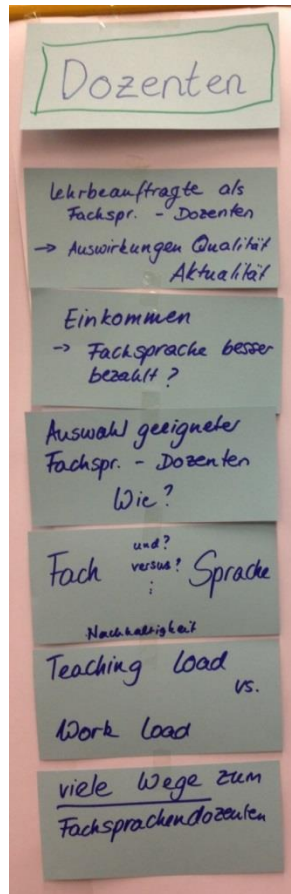 Dozenten
Lehrbeauftragte als
Fachspr. - Dozenten
→ Auswirkungen Qualität
Aktualität
Einkommen
→ Fachsprache besser
bezahlt?
Auswahl geeigneter
Fachspr. - Dozenten
Wie?
und?
Fach versus? Sprache
:
Nachhaltigkeit
Teaching load
vs.
Work load
viele Wege zum
Fachsprachendozenten